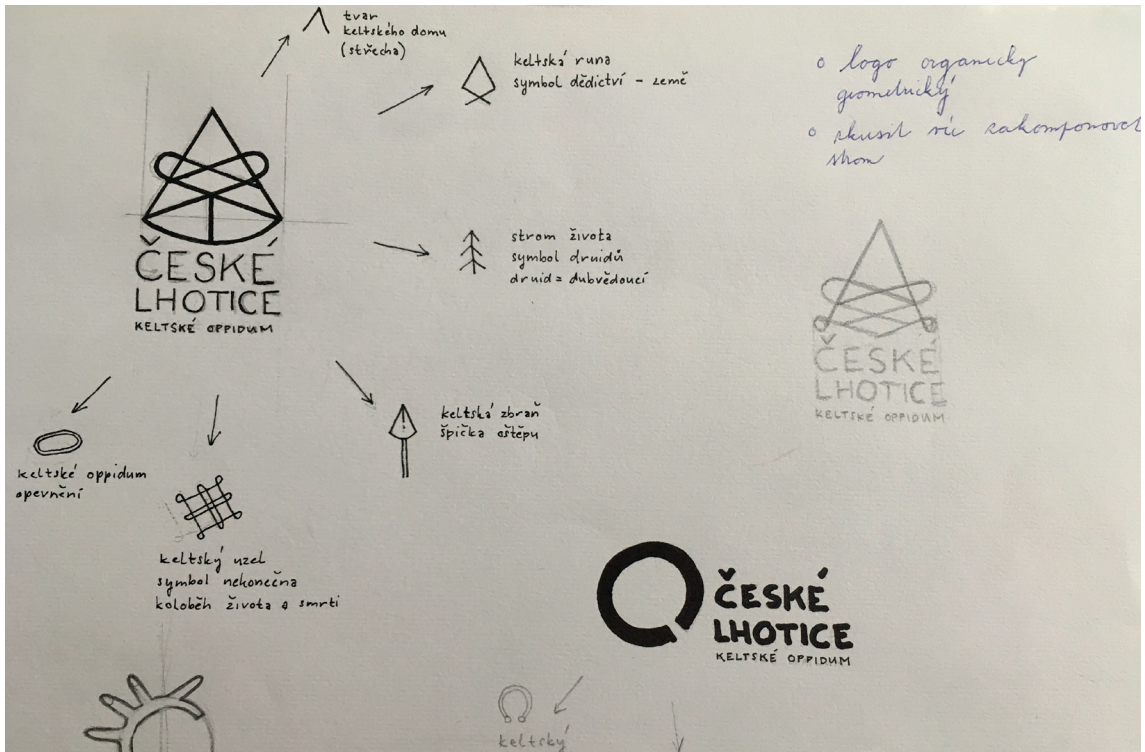 tvar
keltského domu
(střecha)
keltská runa
symbol dědictví - země
o logo organicky
geometrický
o skusit víc zakomponovat
strom
ČESKÉ
LHOTICE
KELTSKÉ OPPIDUM
strom života
symbol druidů
druid = dubvědoucí
ČESKÉ
LHOTICE
KELTSKÉ OPPIDUM
keltská zbraň
špička oštěpu
keltské oppidum
opevnění
keltský uzel
symbol nekonečna
koloběh života a smrti
ČESKÉ
LHOTICE
KELTSKÉ OPPIDUM
keltský